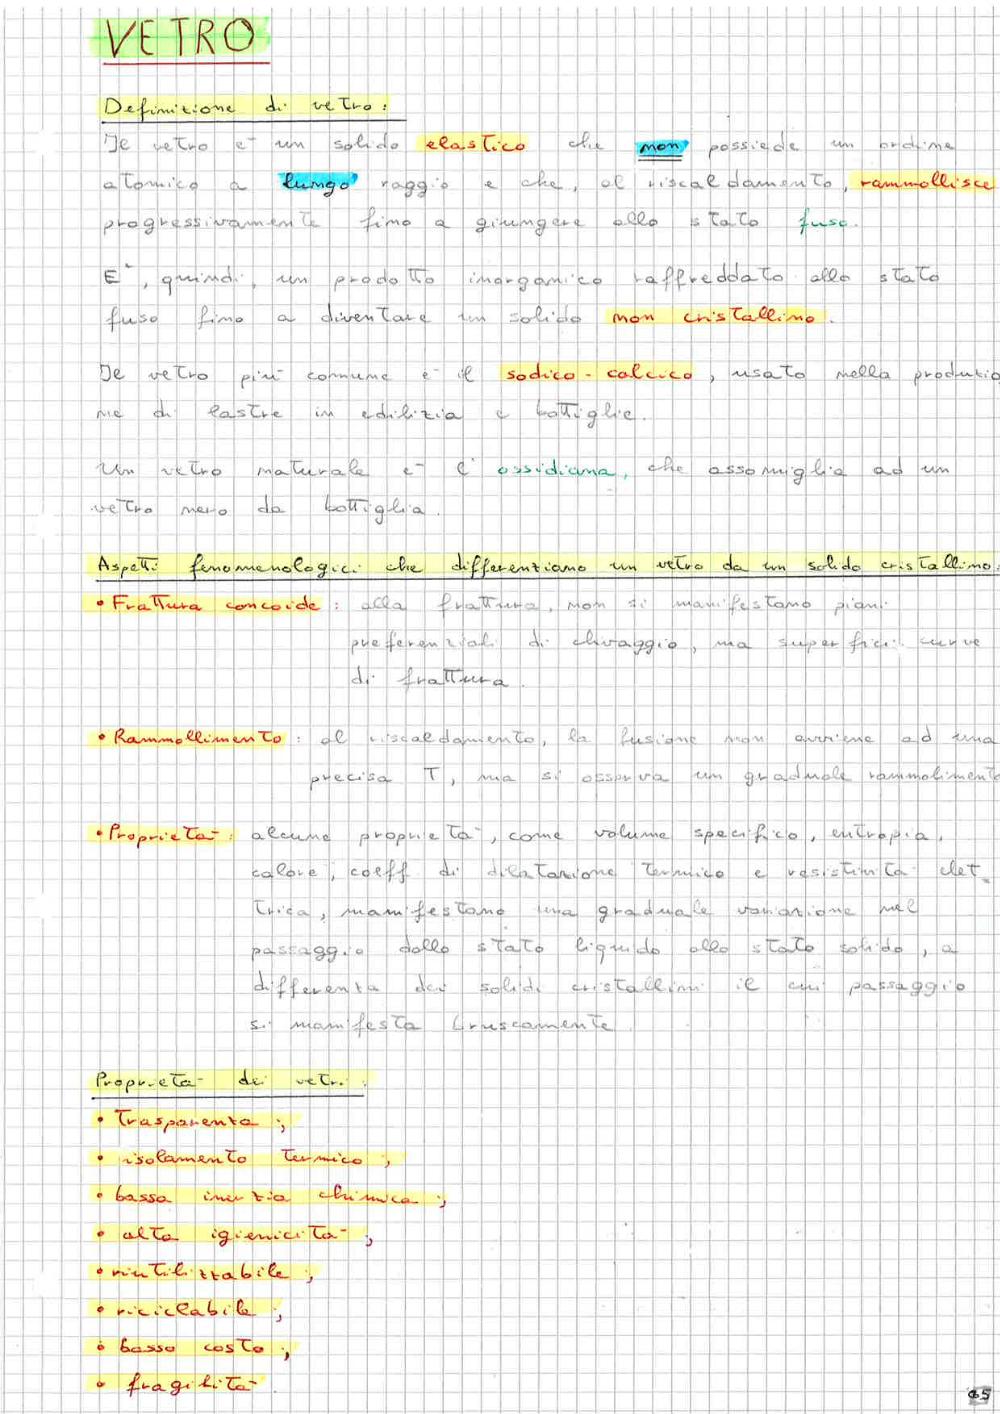 VETRO
Definizione di vetro:
Il vetro è un solido elastico che non possiede un ordine
atomico a lungo raggio e che, al riscaldamento, rammollisce
progressivamente fino a giungere allo stato fuso.
E', quindi, un prodotto inorganico raffreddato allo stato
fuso fino a diventare un solido non cristallino.
Il vetro più comune è il sodico-calcico, usato nella produzio
ne di lastre in edilizia e bottiglie.
Un vetro naturale è l'ossidiana, che assomiglia ad un
vetro nero da bottiglia.
Aspetti fenomenologici che differenziano un vetro da un solido cristallino:
• Frattura concoide: alla frattura, non si manifestano piani
preferenziali di clivaggio, ma superfici curve
di frattura.
• Rammollimento: al riscaldamento, la fusione non avviene ad una
precisa T, ma si osserva un graduale rammolimento
• Proprietà: alcune proprietà, come volume specifico, entropia,
calore, coeff. di dilatazione termico e resistività elet_
trica, manifestano una graduale variazione nel
passaggio dallo stato liquido allo stato solido, a
differenza dei solidi cristallini il cui passaggio
si manifesta bruscamente.
Proprietà dei vetri:
• Trasparenza;
• isolamento termico;
• bassa inerzia chimica;
• alta igienicità;
• riutilizzabile;
• riciclabile;
• basso costo;
• fragilità.
65